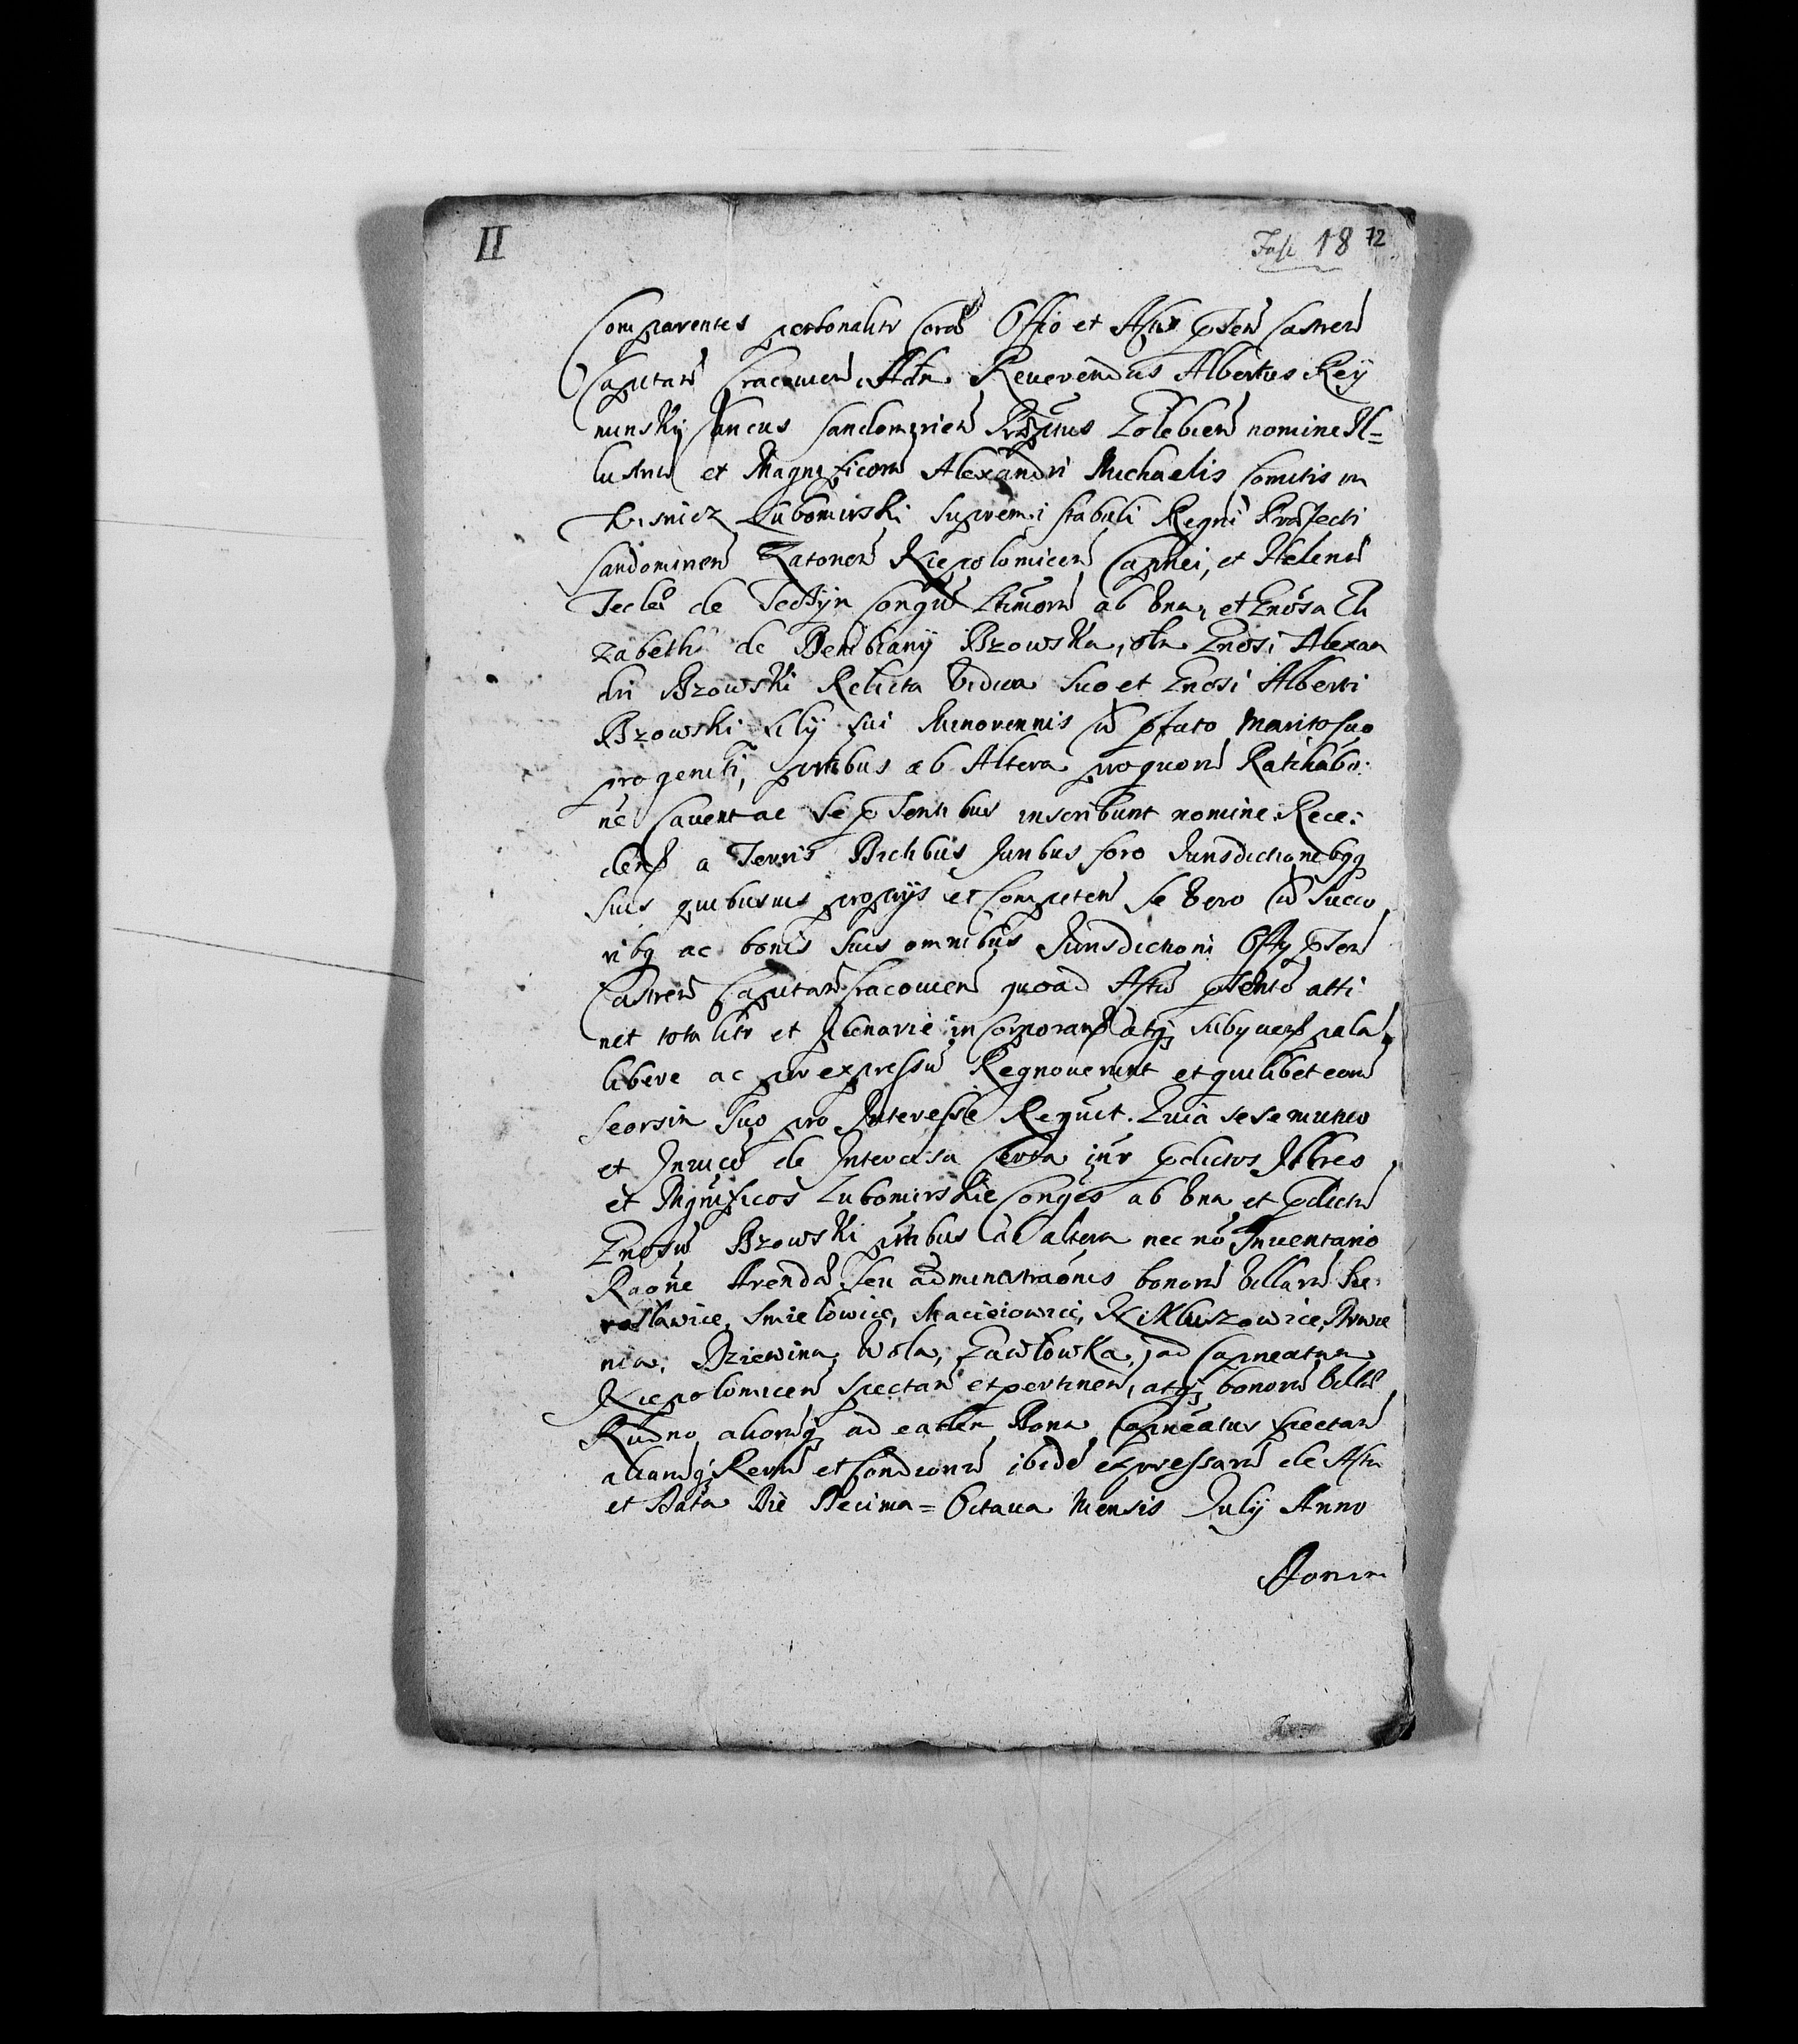 II
Fasc 18 72
Comparentes personalitr Corā Offio et Actis pñten Castren
Capitan Cracouien Adm Reuerendus Albertus Rey
munsky Cancus Sandomirien Præptus Zolebien nomine Il=
lustriū et Magnificorū Alexandri Michaelis Comitis in
Wisnicz Lubomirski Supremi stabuli Regni Præfecti
Sandomiren Zatoren Niepolomicen Capnei, et Helenæ
Teclæ de Tectyn Congū Ltimorū ab una, et Gnosa Eli
zabetha de Dembiany Bzowska, olim Gnosi Alexan
dri Bzowski Relicta Vidua suo et Gnosi Alberti
Bzowski filij sui Minorennis cū pfato Marito suo
progeniti, partibus ab Altera pro quorū Ratihabio:
ne Cauent ac se pñtentibus inscribunt nomine. Rece:
den a Terris Dictibus Juribus foro Jurisdictionebqq
suis quibusuis proprijs et Competen Se Vero cū Succo
ribq ac bonis suis omnibus Jurisdictioni Offij pñten
Castren Capitan Cracouien quoad Actū pñtentē atti
net totalitr et plenarie incorporan atq; subijcien palā
libere ac per expressū Regnouerunt et quilibet eorū
seorsim suo pro Interesse Regnuit. Quia sese mutuo
et Inuicē de Intercisa Certa intr pdictos Illres
et Mgnificos Lubomirskie Conges ab una et pdictā
Gnosū Bzowski ptibus ab altera nec nō Inuentario
Raone Arendæ seu administraonis bonorū Villarū Sie:
rosławice, Smiełowice, Macieiowice, Mikluszowice, Drwie
nia, Dziewina, Wola, Gawłowka, ad Capneatum
Niepolomicen spectan et pertinen, atq; bonorū Villæ
Rudno aliorūq ad eadem Bona Capneatus spectan
aliarūq Rerū et Condionū ibidē expressarū de Actu
et Data Die Decima = Octaua Mensis Julij Anno
Domini